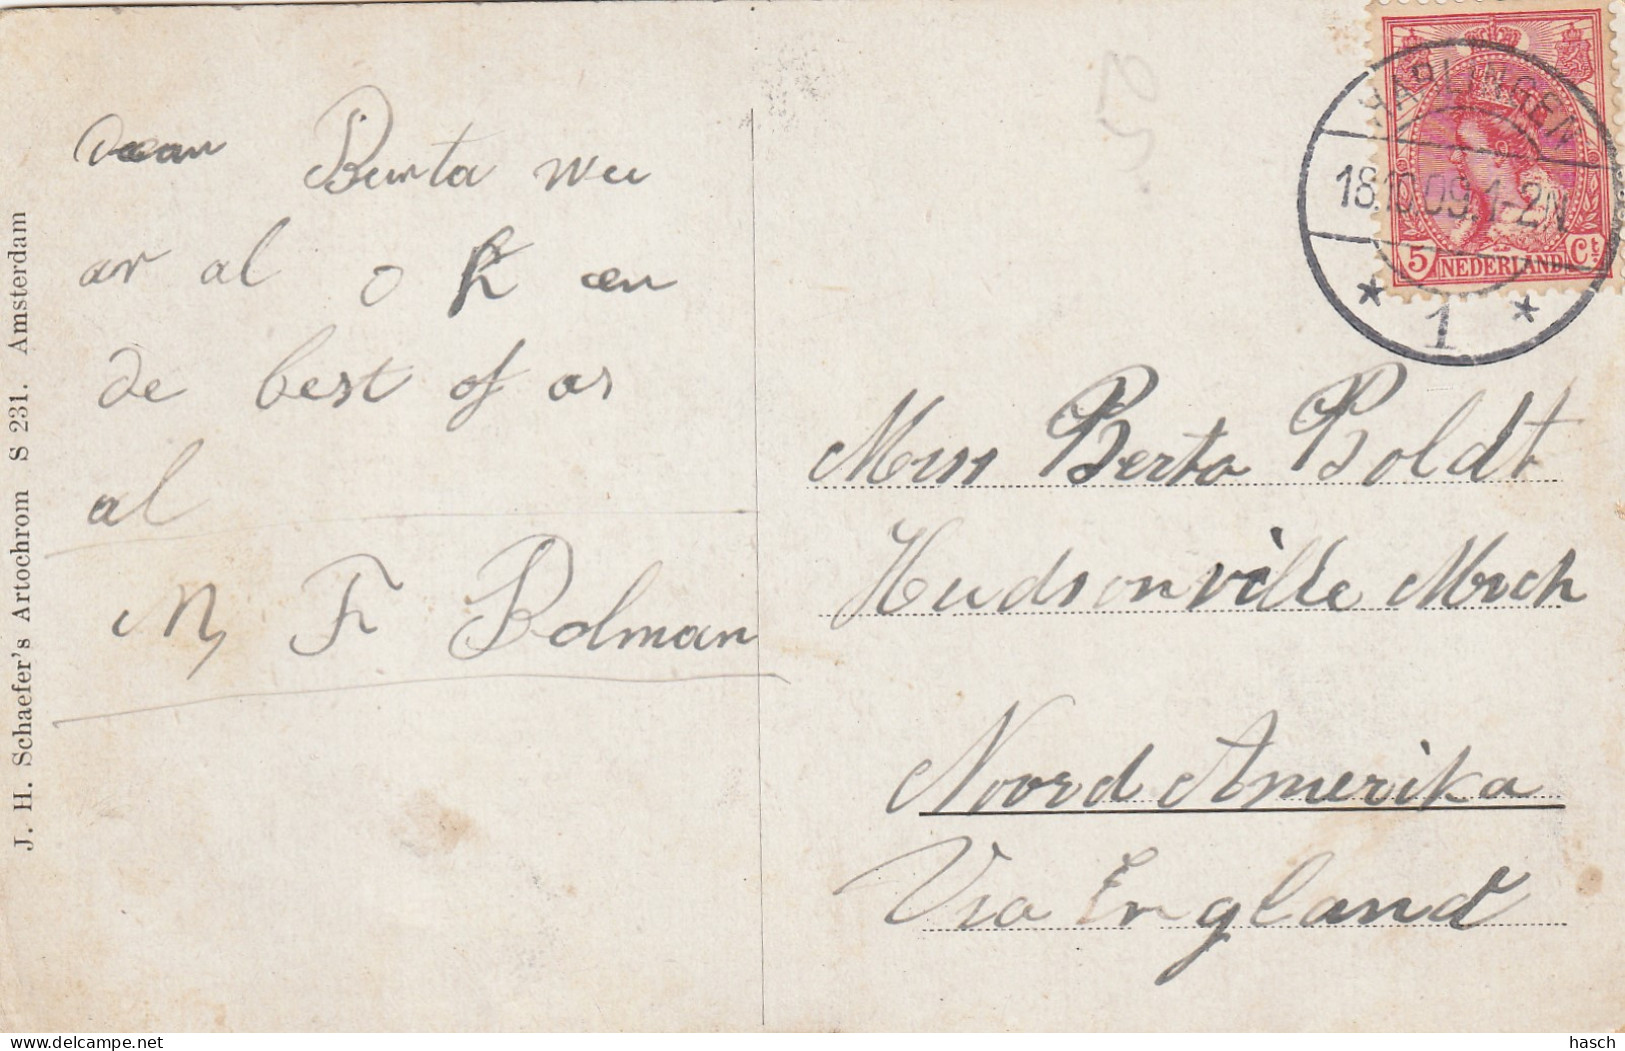 J. H. Schaefer's Artochrom S 231. Amsterdam
Berta wee
ar al o k an
de best of as
al
M, F Bolman
HARLINGEN
18.10.09.1-2N
1
5 NEDERLAND Ct
Miss Berta Boldt
Hudsonville Mich
Noord Amerika
Via England
hasch